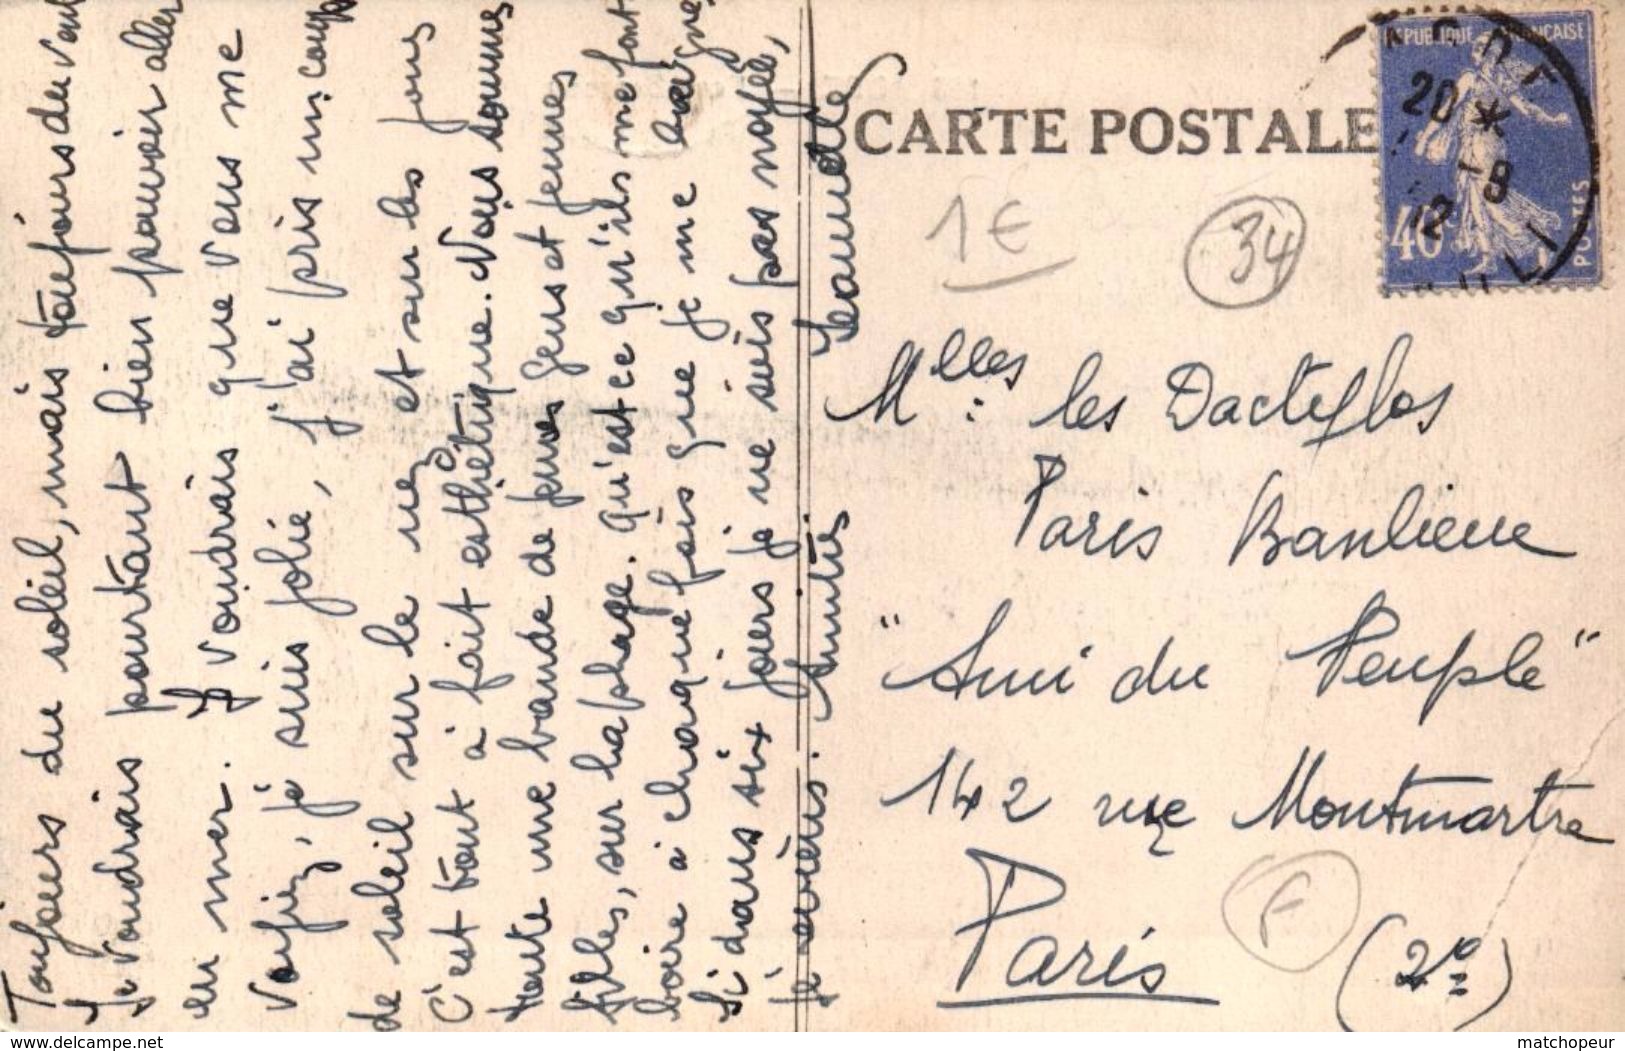 Toujours du soleil, mais toujours du vent
Je voudrais pourtant bien pouvoir aller
en mer. Je voudrais que vous me
voyiez, je suis jolie, j'ai pris un coup
de soleil sur le nez et sur les joues
C'est tout à fait esthétique. Nous sommes
toute une bande de jeunes gens et jeunes
filles, sur la plage. Qu'est ce qu'ils me font
boire à chaque fois que je me baigne
Si dans six jours je ne suis pas noyée,
je écrirai. Amitiés
CARTE POSTALE
REPUBLIQUE FRANÇAISE
20 *
-9
12
40c
POSTES
1€
34
Mlles les Dactylos
Paris Banlieue
"Ami du Peuple"
142 rue Montmartre
Paris
(2e)
F
www.delcampe.net
matchopeur